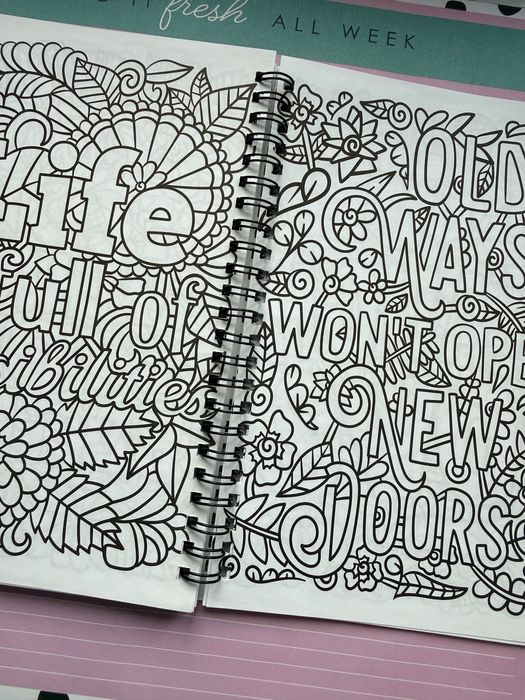 fresh ALL WEEK
Life
full of
OLD
WAYS
WON'T OPE
NEW
DOORS